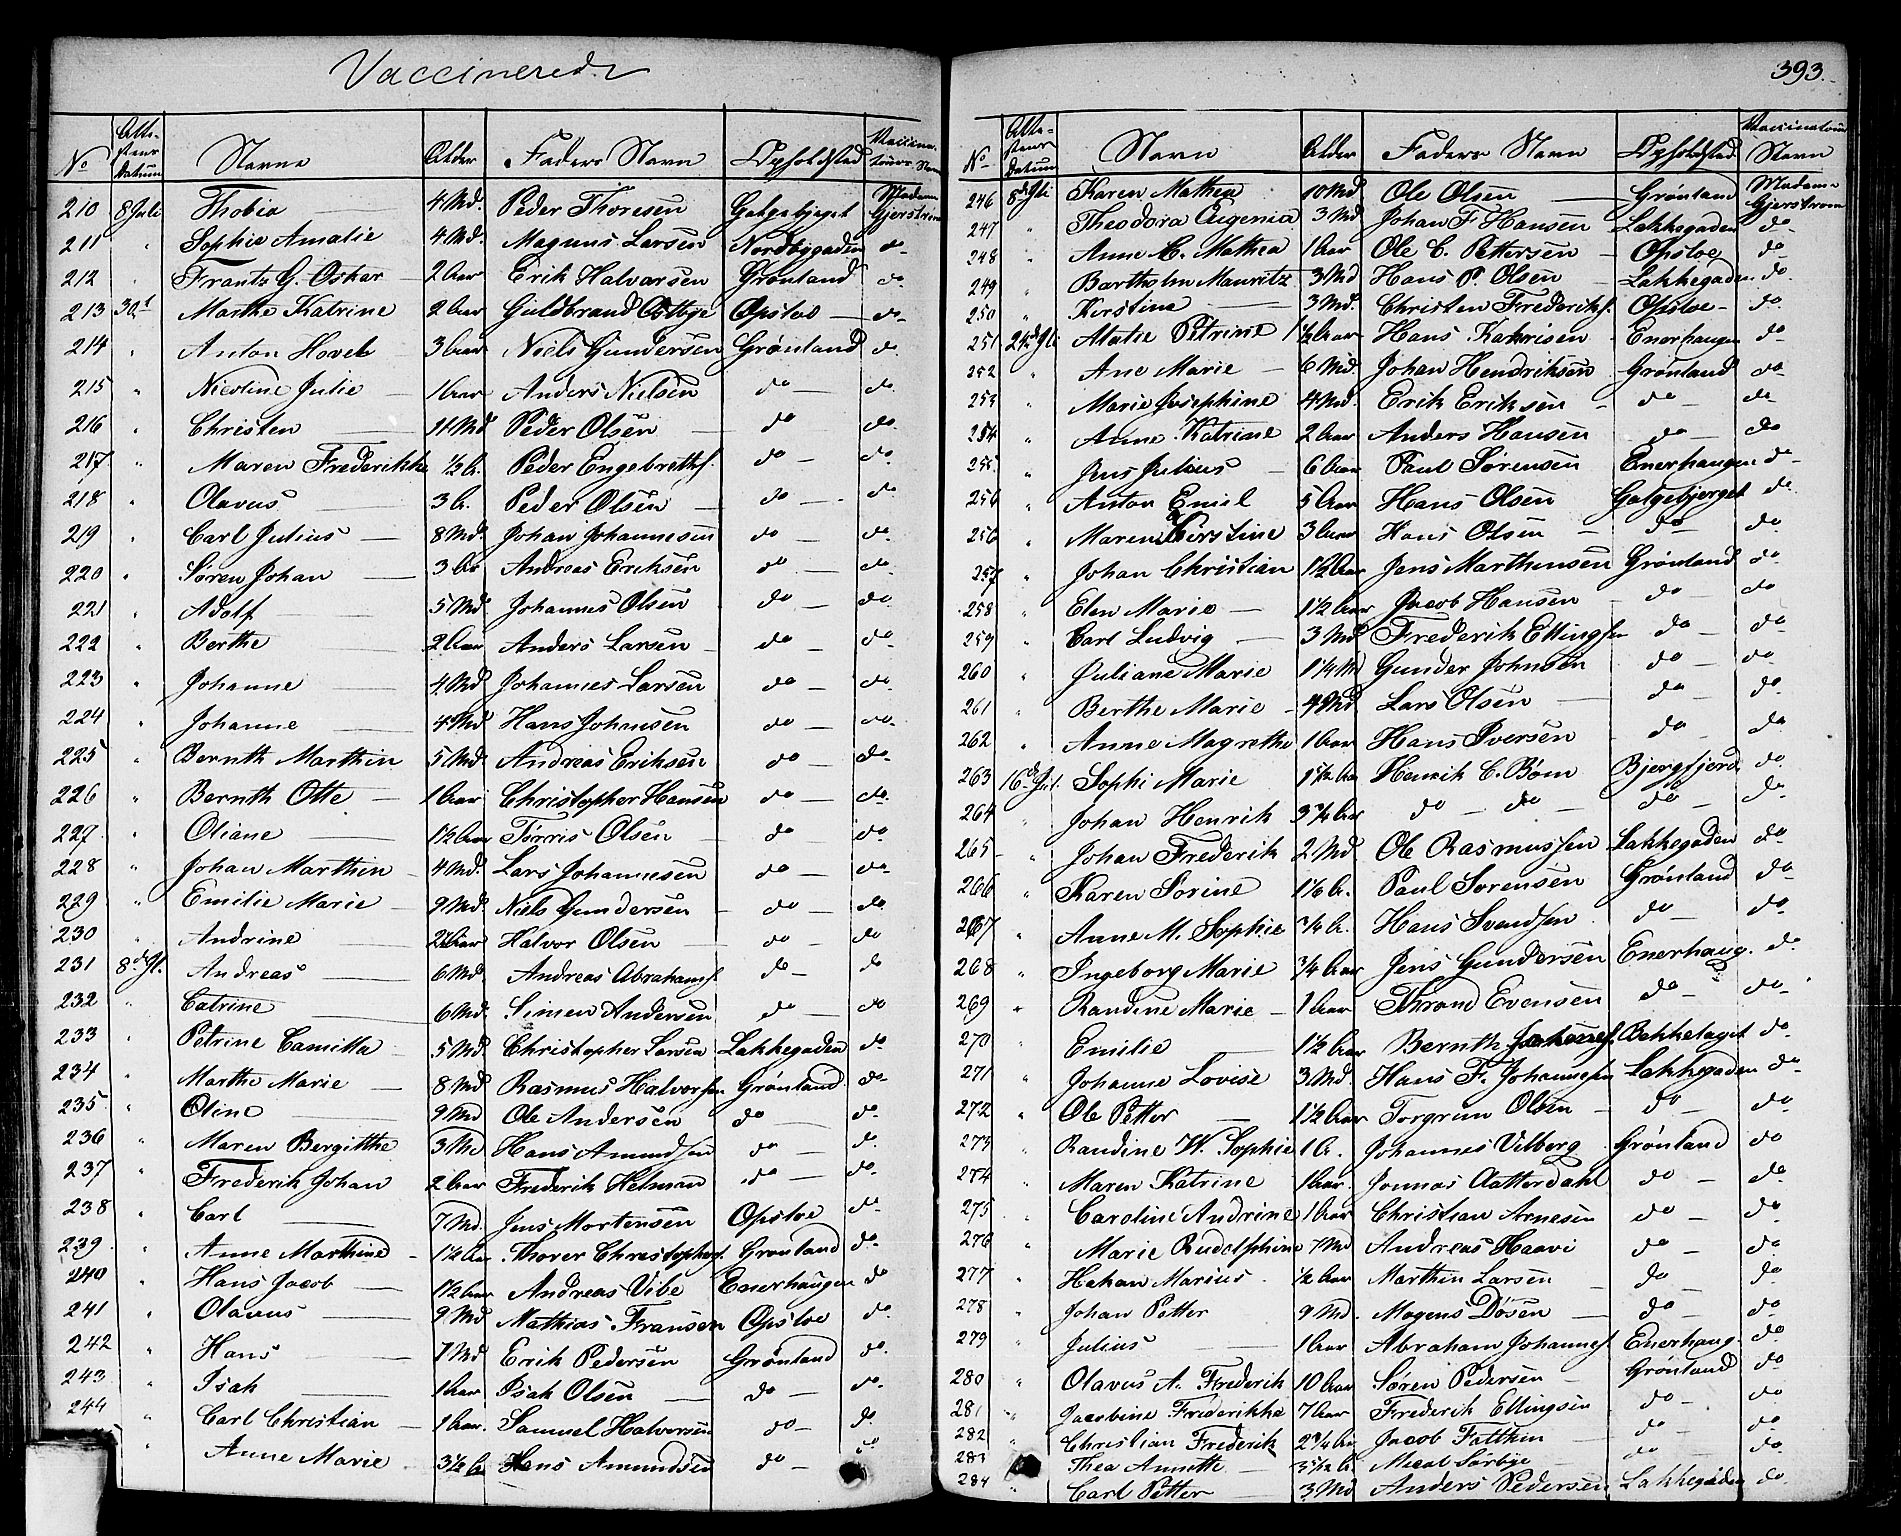 Vaccinerede
No Atte-stens Datum Navne Alder Faders Navn Opholdsted Vaccina-teurs Navn
210 8 Juli Thobia — 4 Md. Peder Thoresen Galgebjerget Madame Gjerstrøm
211 " Sophie Amalie 4 Md. Magnus Larsen Nordbygaden do
212 " Frantz G. Oskar — 2 Aar Erik Halvorsen Grønland do
213 30t Marthe Katrine 2 Aar Guldbrand Østbye Opsloe — do
214 " Anton Hovel 3 Aar Niels Gundersen Grønland do
215 " Nicoline Julie — 1 Aar Anders Nielsen do — do
216 " Christen — 11 Md Peder Olsen — do do
217 " Maren Frederikke 1/2 A. Peder Engebrethsf. do — do
218 " Olavus — 3 A. Peder Olsen — do — do
219 " Carl Julius — 8 Md. Johan Johannesen do — do
220 " Søren Johan — 3 Aar Andreas Eriksen do — do
221 " Adolf — 5 Md. Johannes Olsen do — do
222 " Berthe — 2 Aar Anders Larsen — do — do
223 " Johanne — 4 Md Johannes Larsen do — do
224 " Johanne — 4 Md Hans Johansen do — do
225 " Bernth Marthin 5 Md. Andreas Eriksen do — do
226 " Bernth Otte — 1 Aar Christopher Hansen do — do
227 " Oliane — 1 1/2 Aar Tørris Olsen — do do
228 " Johan Marthin — 4 Md. Lars Johannesen do — do
229 " Emilie Marie — 9 Md. Niels Gundersen do — do
230 " Andrine Halvor Olsen — do — do
231 8de Jl. Andreas — 6 Md. Andreas Abrahamsf. do — do
232 " Catrine — 6 Md. Simen Andersen do — do
233 " Petrine Camilla — 5 Md. Christopher Larsen Lakkegaden do
234 " Marthe Marie — 8 Md Rasmus Halvorsen Grønland do
235 " Oline — 9 Md Ole Andersen do — do
236 " Maren Bergitthe 3 Md Hans Amundsen do — do
237 " Frederik Johan 2 Aar Frederik Helman do — do
238 " Carl — 7 Md. Jens Mortensen Opsloe do
239 " Anne Marthine 1 1/2 Aar Thorer Christophersf. Grønland do
240 " Hans Jacob — 1 1/2 Aar Andreas Vibe Enerhaugen do
241 " Olavus — 9 Md Mathias Fransen Opsloe do
242 " Hans — 7 Md Erik Pedersen Grønland do
243 " Isak — 1 Aar Isak Olsen — do — do
244 " Carl Christian — 1 Aar. Samuel Halvorsen do — do
" Anne Marie 3 1/2 A Hans Amundsen do — do
393.
No Atte-stens Datum Navn Alder Faders Navn Opholdsted Vaccinateurs Navn
246 8de Jli Karen Mathea 10 Md Ole Olsen — Grønland Madame Gjerstrøm
247 " Theodora Eugenia 3 Md Johan F Hansen Lakkegaden do
248 " Anne C. Mathea 1 Aar Ole C. Pettersen — Opsloe do
249 " Bartholm Mauritz 3 Md Hans P. Olsen — Lakkegaden do.
250 " Kirstine — 3 Md. Christen Frederiksf. Opsloe — do
251 24de Jli Alatie Petrine 1 1/2 Aar Hans Enerhaugen do
252 " Ane Marie — 6 Md. Johan Hendriksen Grønland do
253 " Marie Josephine 4 Md. Erik Eriksen — do — do
254 " Anne Katrine 2 Aar Anders Hansen do — do
255. " Jens Julius — 6 Aar Paul Sørensen Enerhaugen do
256 " Anton Emil 5 Aar Hans Olsen Galgebjerget do
256 " Maren Kirstine 3 Aar Hans Olsen — do do
257 " Johan Christian 1 1/2 Aar Jens Marthinsen Grønland do
258 " Elen Marie — 1 1/2 Aar Jacob Hansen — do — do
259 " Carl Ludvig — 3 Md Frederik Ellingsen do — do
260 " Juliane Marie 1 1/4 Md Gunder Johnsen do — do
261 " Berthe Marie — 4 Md Lars Olsen — do — do
262 " Anne Magrethe 1 Aar Hans Iversen do — do
263 16de Jul. Sophi Marie 1 1/2 Aar Henrik C. Bøm Bjergfjerd. do
264 " Johan Henrik 3 3/4 Aar do — do — do — do
265 " Johan Frederik 2 Md Ole Rasmussen Lakkegaden do
266 " Karen Sorine 1 1/2 A. Paul Sorensen Grønland do
267 " Anne M. Sophie 3/4 A. Hans Svendsen do — do
268 " Ingeborg Marie 3/4 Aar Jens Gundersen Enerhaug. do
269 " Randine Marie — 1 Aar Thrond Evensen do — do
270 " Emilie — 1 1/2 Aar Bernth Bakkelaget do
271 " Johanne Lovise 3 Md. Hans F. Johannesen Lakkegaden do
272 " Ole Petter — 1 1/2 Aar Torgrim Olsen — do — do
273 " Randine W. Sophie 1 A. Johannes Vilberg Grønland do
274 " Maren Katrine 1 Aar. Jonnas Aatterdahl do — do
275 " Caroline Andrine 1 Aar Christian Arnesen do — do
276 " Marie Rudolphine 7 Md Andreas Haavi do — do
277 " Hakan Marius 1/2 Aar Marthin Larsen — do — do
278 " Johan Petter 9 Md. Mogens Dösen — do — do
279 " Julius — 1 Aar Abraham Johannesf. Enerhaug. do
280 " Olavus A. Frederik 10 Aar Søren Pedersen — Grønland do
281 " Jacobine Frederikke 7 Aar Frederik Ellingsen do — do
282 " Christian Frederik 2 3/4 Aar Jacob Fattkin — do — do
283 Thea Annette — 3 5/12 A. do — do
284 " Carl Petter — 3 Md Anders Pedersen Lakkegaden do